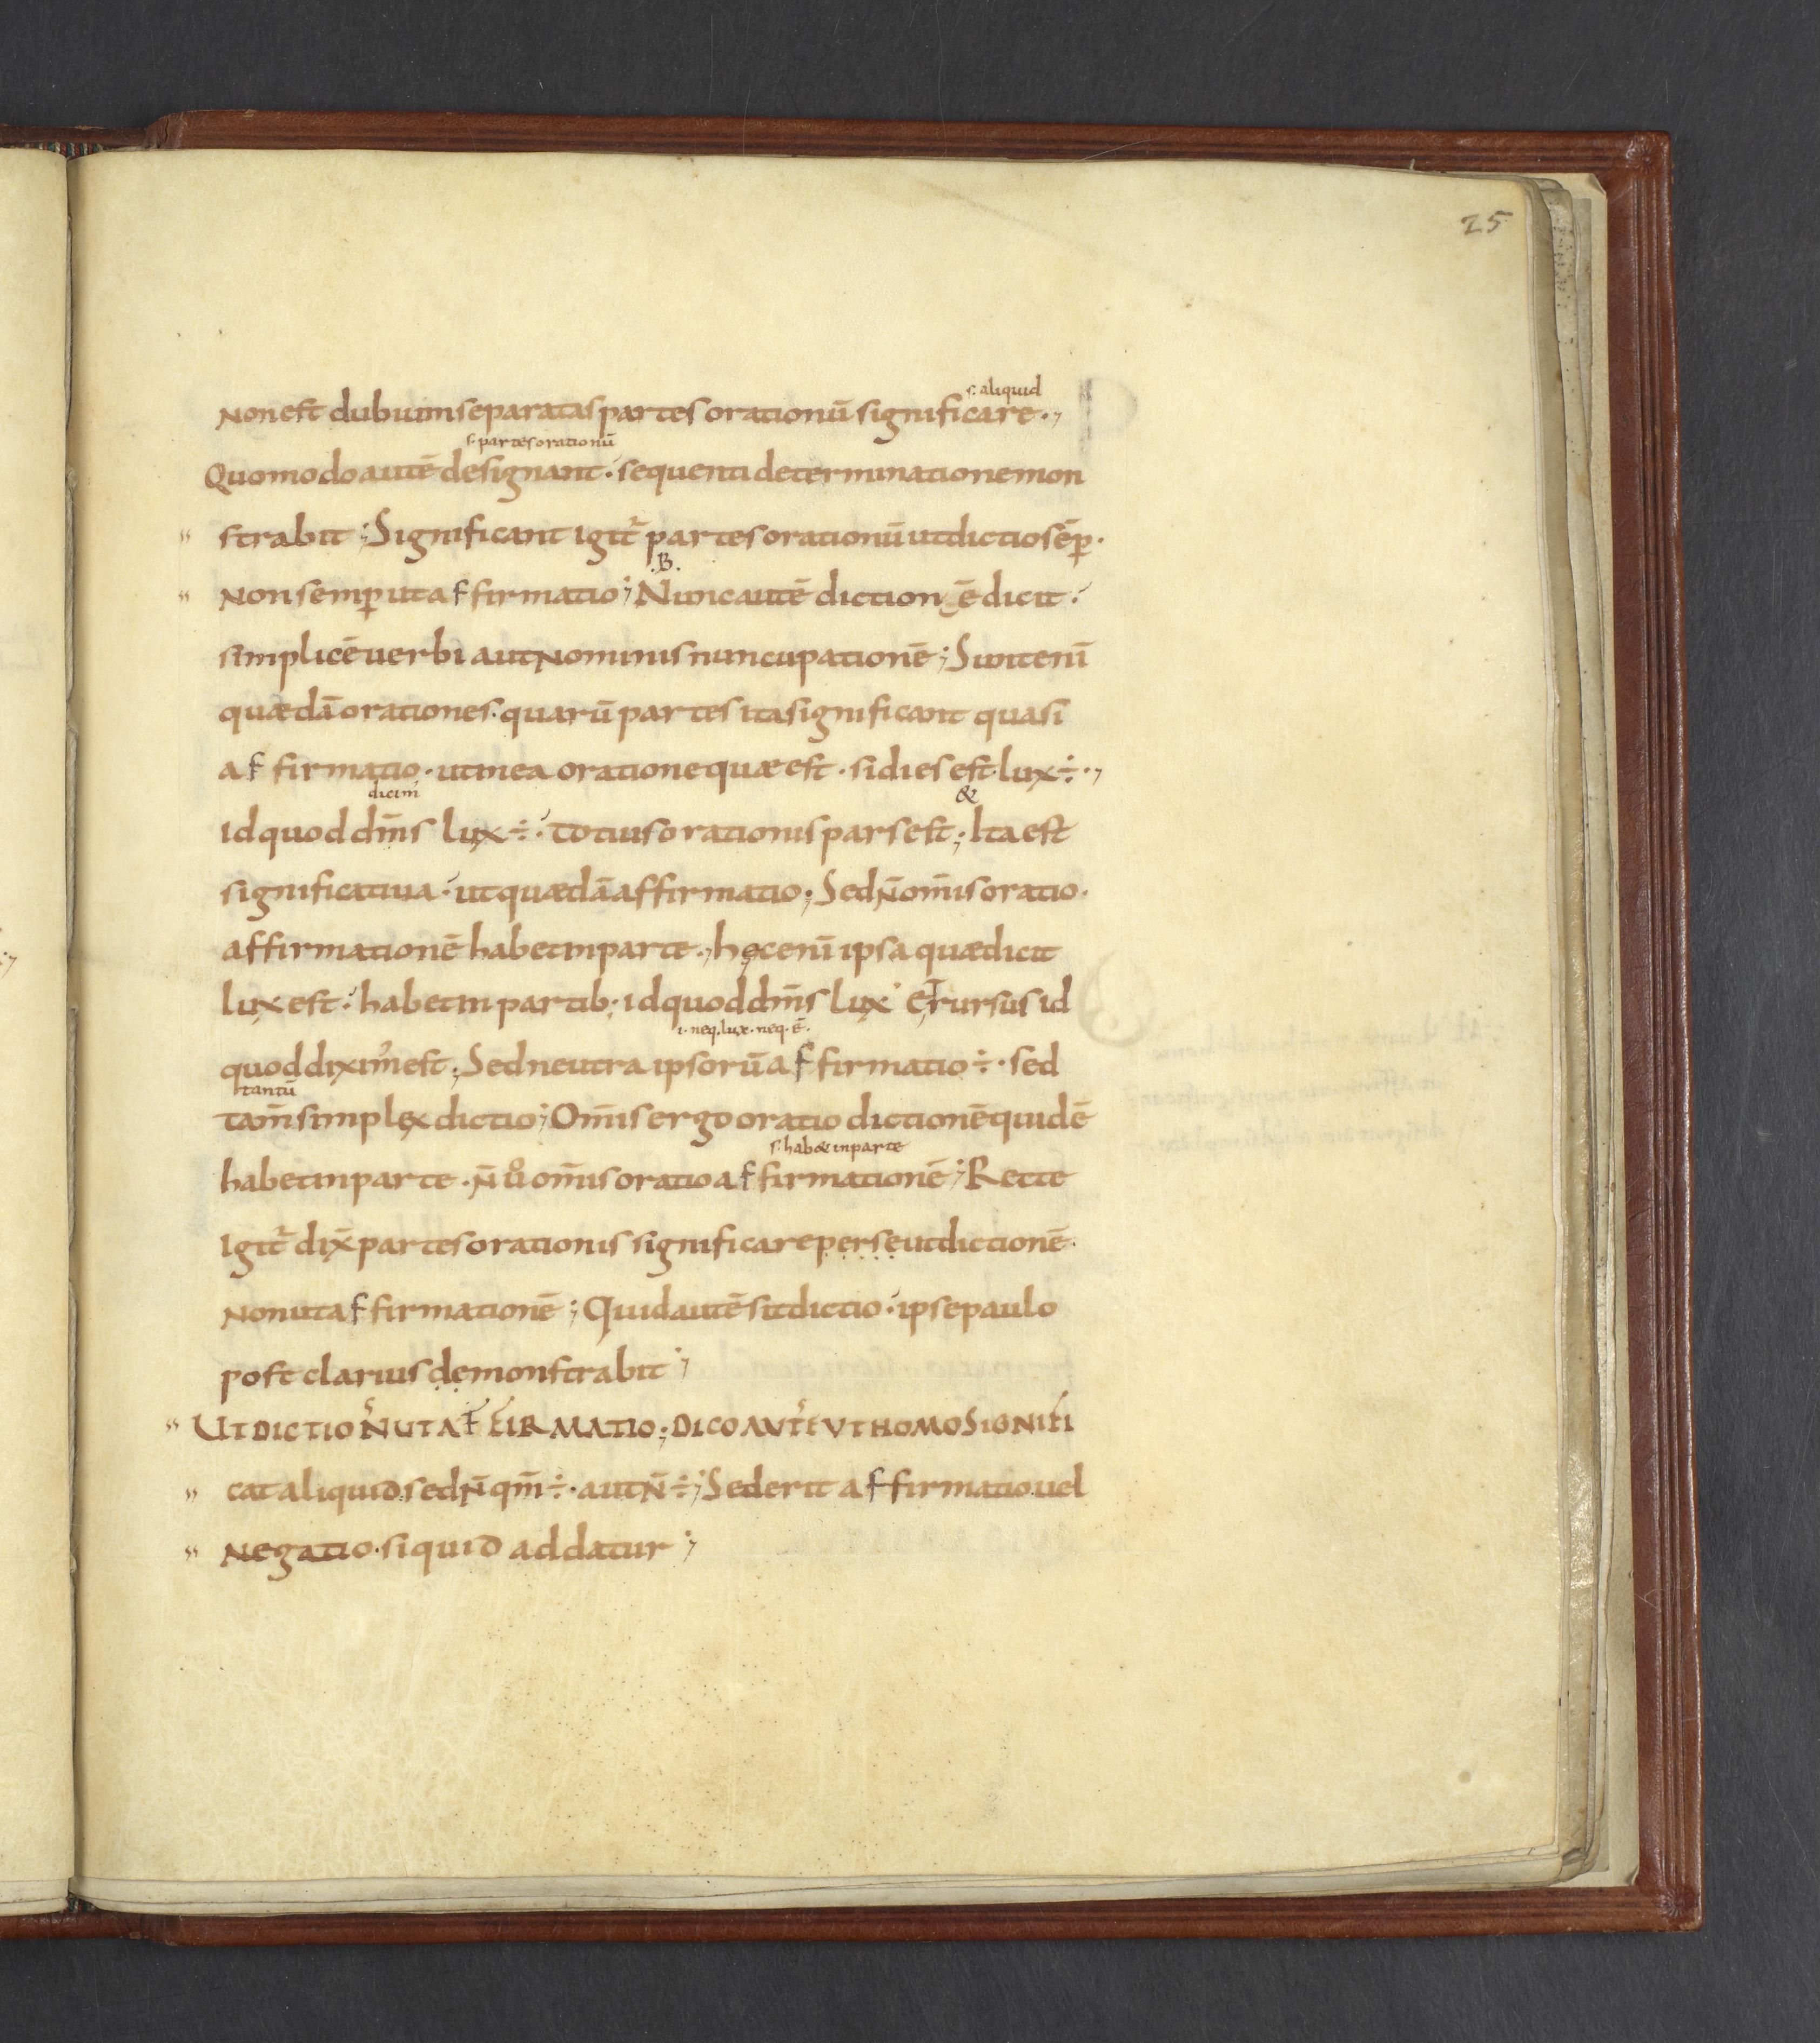 25
s. aliquid
Non est dubium separatas partes orationū significare.,
s. partes orationū
Quomodo autē designant. sequenti determinatione mon
strabit; Significant igit̄ partes orationū ut dictio sēp̄.
.B.
Non semp̄ ut affirmatio; Nunc autē diction ē dicit.
simplicē uerbi aut nominis nuncupationē; Sunt enī
quædā orationes. quarū partes ita significant quasi
affirmatio. ut in ea oratione quæ est. si dies est. lux ÷.,
dicim &
Id quod dm̄s lux ÷. totius orationis pars est; Ita est
significatiua. ut quædā affirmatio; Sed n̄ om̄is oratio.
affirmationē habet in parte., hęc enī ipsa quæ dicit
lux est. habet in partib; id quod dm̄s lux Et rursus id
i. neq. lux. neq. ē.
quod dixim᾿ est; Sed neutra ipsorū affirmatio ÷. sed
tantū
tam̄ simplex dictio; Om̄is ergo oratio dictionē quidē
s. hab& in parte
habet in parte. n̄ ů om̄is oratio affirmationē; Recte
Igit̄ dix̄ partes orationis significare per se ut dictionē.
Non ut affirmationē; Quid autē sit dictio. ipse paulo
post clarius demonstrabit;
UT DICTIO N̄ UT AFFIRMATIO; DICO AUTĒ UT HOMO SIGNIFI
cat aliquid sed n̄ qm̄ ÷. aut n̄ ÷; Sed erit affirmatio uel
Negatio. si quid addatur;